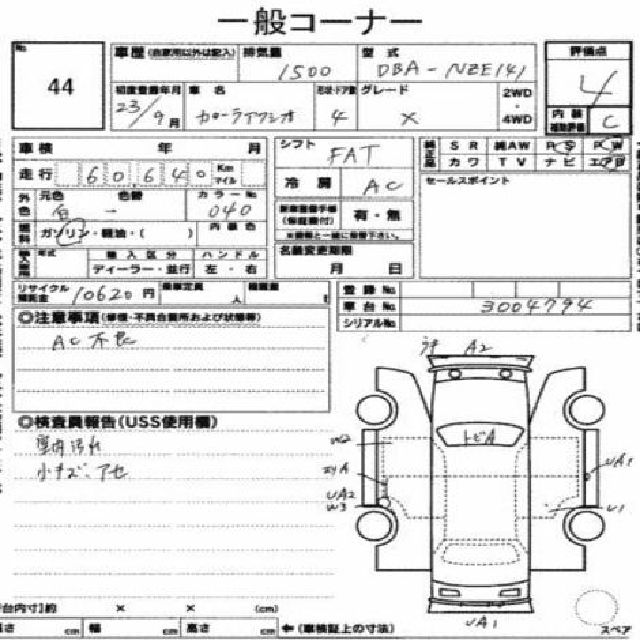 一般コーナー
No.
44
車歴 (自家用以外は記入)
排気量
1500
型式
DBA-NZE141
評価点
4
初度登録年月
23/9月
車名
カローラアクシオ
形状・ドア数
4
グレード
X
2WD
・
4WD
内装
補助評価
C
車検 年 月
シフト
FAT
純正品
SR 純AW PS PW
カワ TV ナビ エアB
走行
60640
Km
マイル
冷房
AC
セールスポイント
外色
元色
白
色替
-
カラーNo
040
(保証書付)
有・無
燃料
ガソリン・軽油・( )
内装色
名義変更期限
月 日
年式
輸入区分
ディーラー・並行
ハンドル
左・右
リサイクル
預託金
10620円
乗車定員
人
積載量
t
登録No
車台No
3004794
シリアルNo
◎注意事項(修復・不具合箇所および状態等)
AC不良
A2
◎検査員報告(USS使用欄)
室内汚れ
小キズ、アセ
トビA
W2
UA1
UA2
W3
U1
UA1
(荷台内寸)約 × × (cm)
長さ cm 幅 cm 高さ cm ←(車検証上の寸法)
スペア